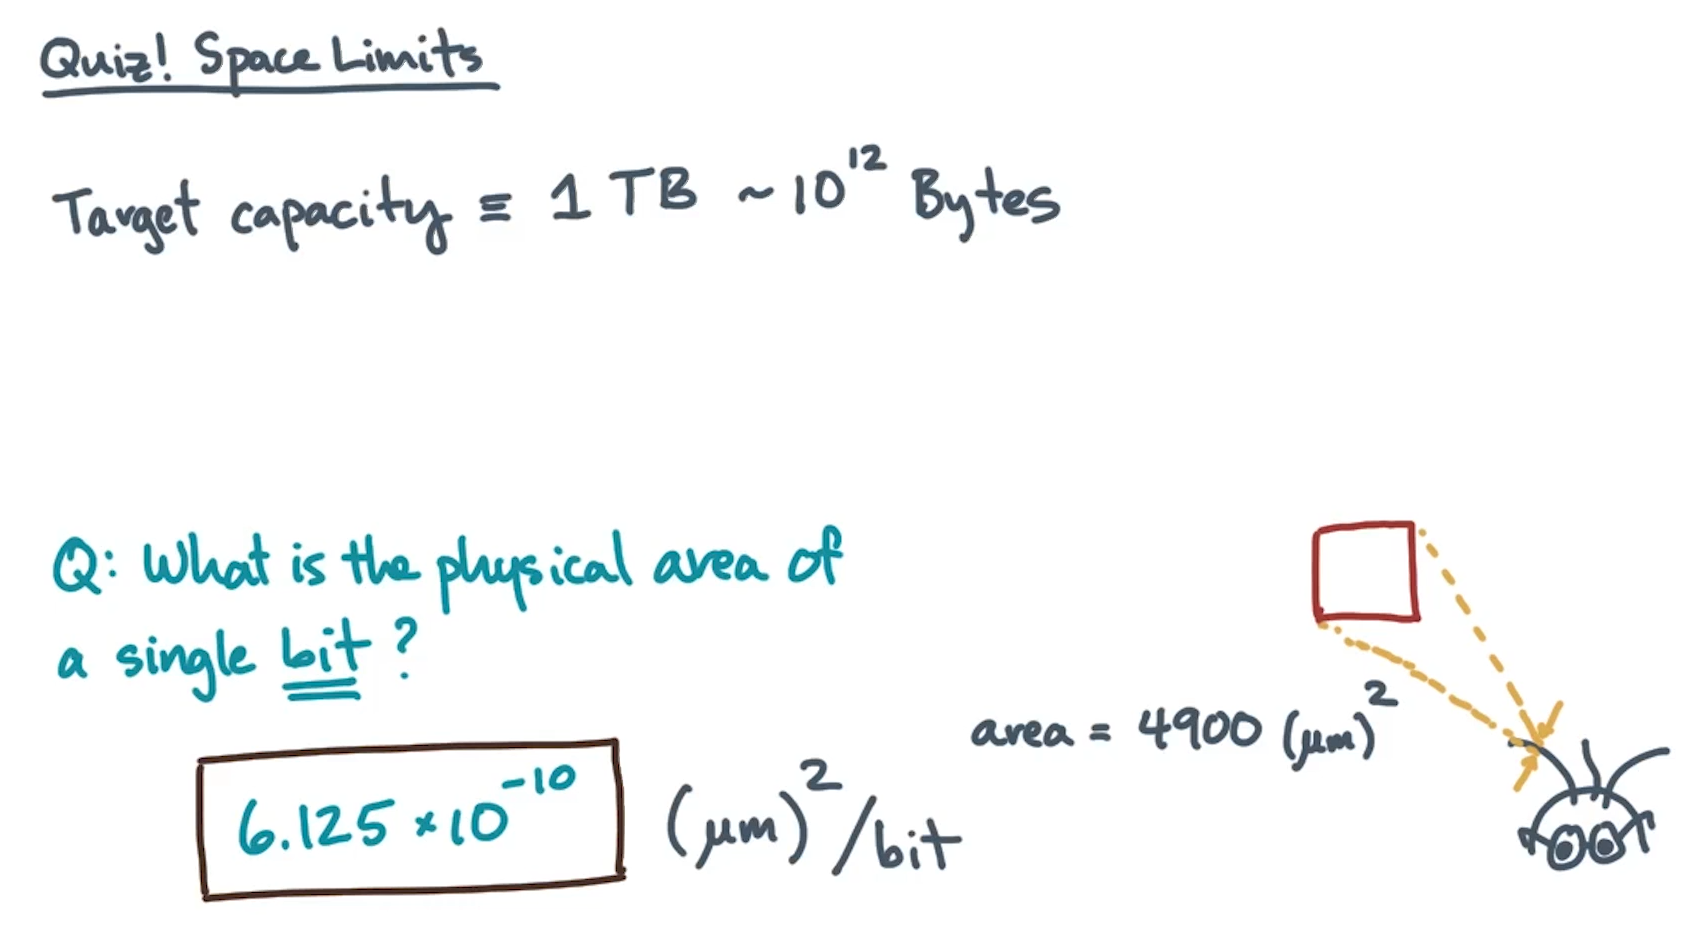 Quiz! Space Limits
Target capacity ≡ 1 TB ~ 10^12 Bytes
Q: What is the physical area of
a single bit?
area = 4900 (μm)^2
6.125 × 10^-10 (μm)^2/bit